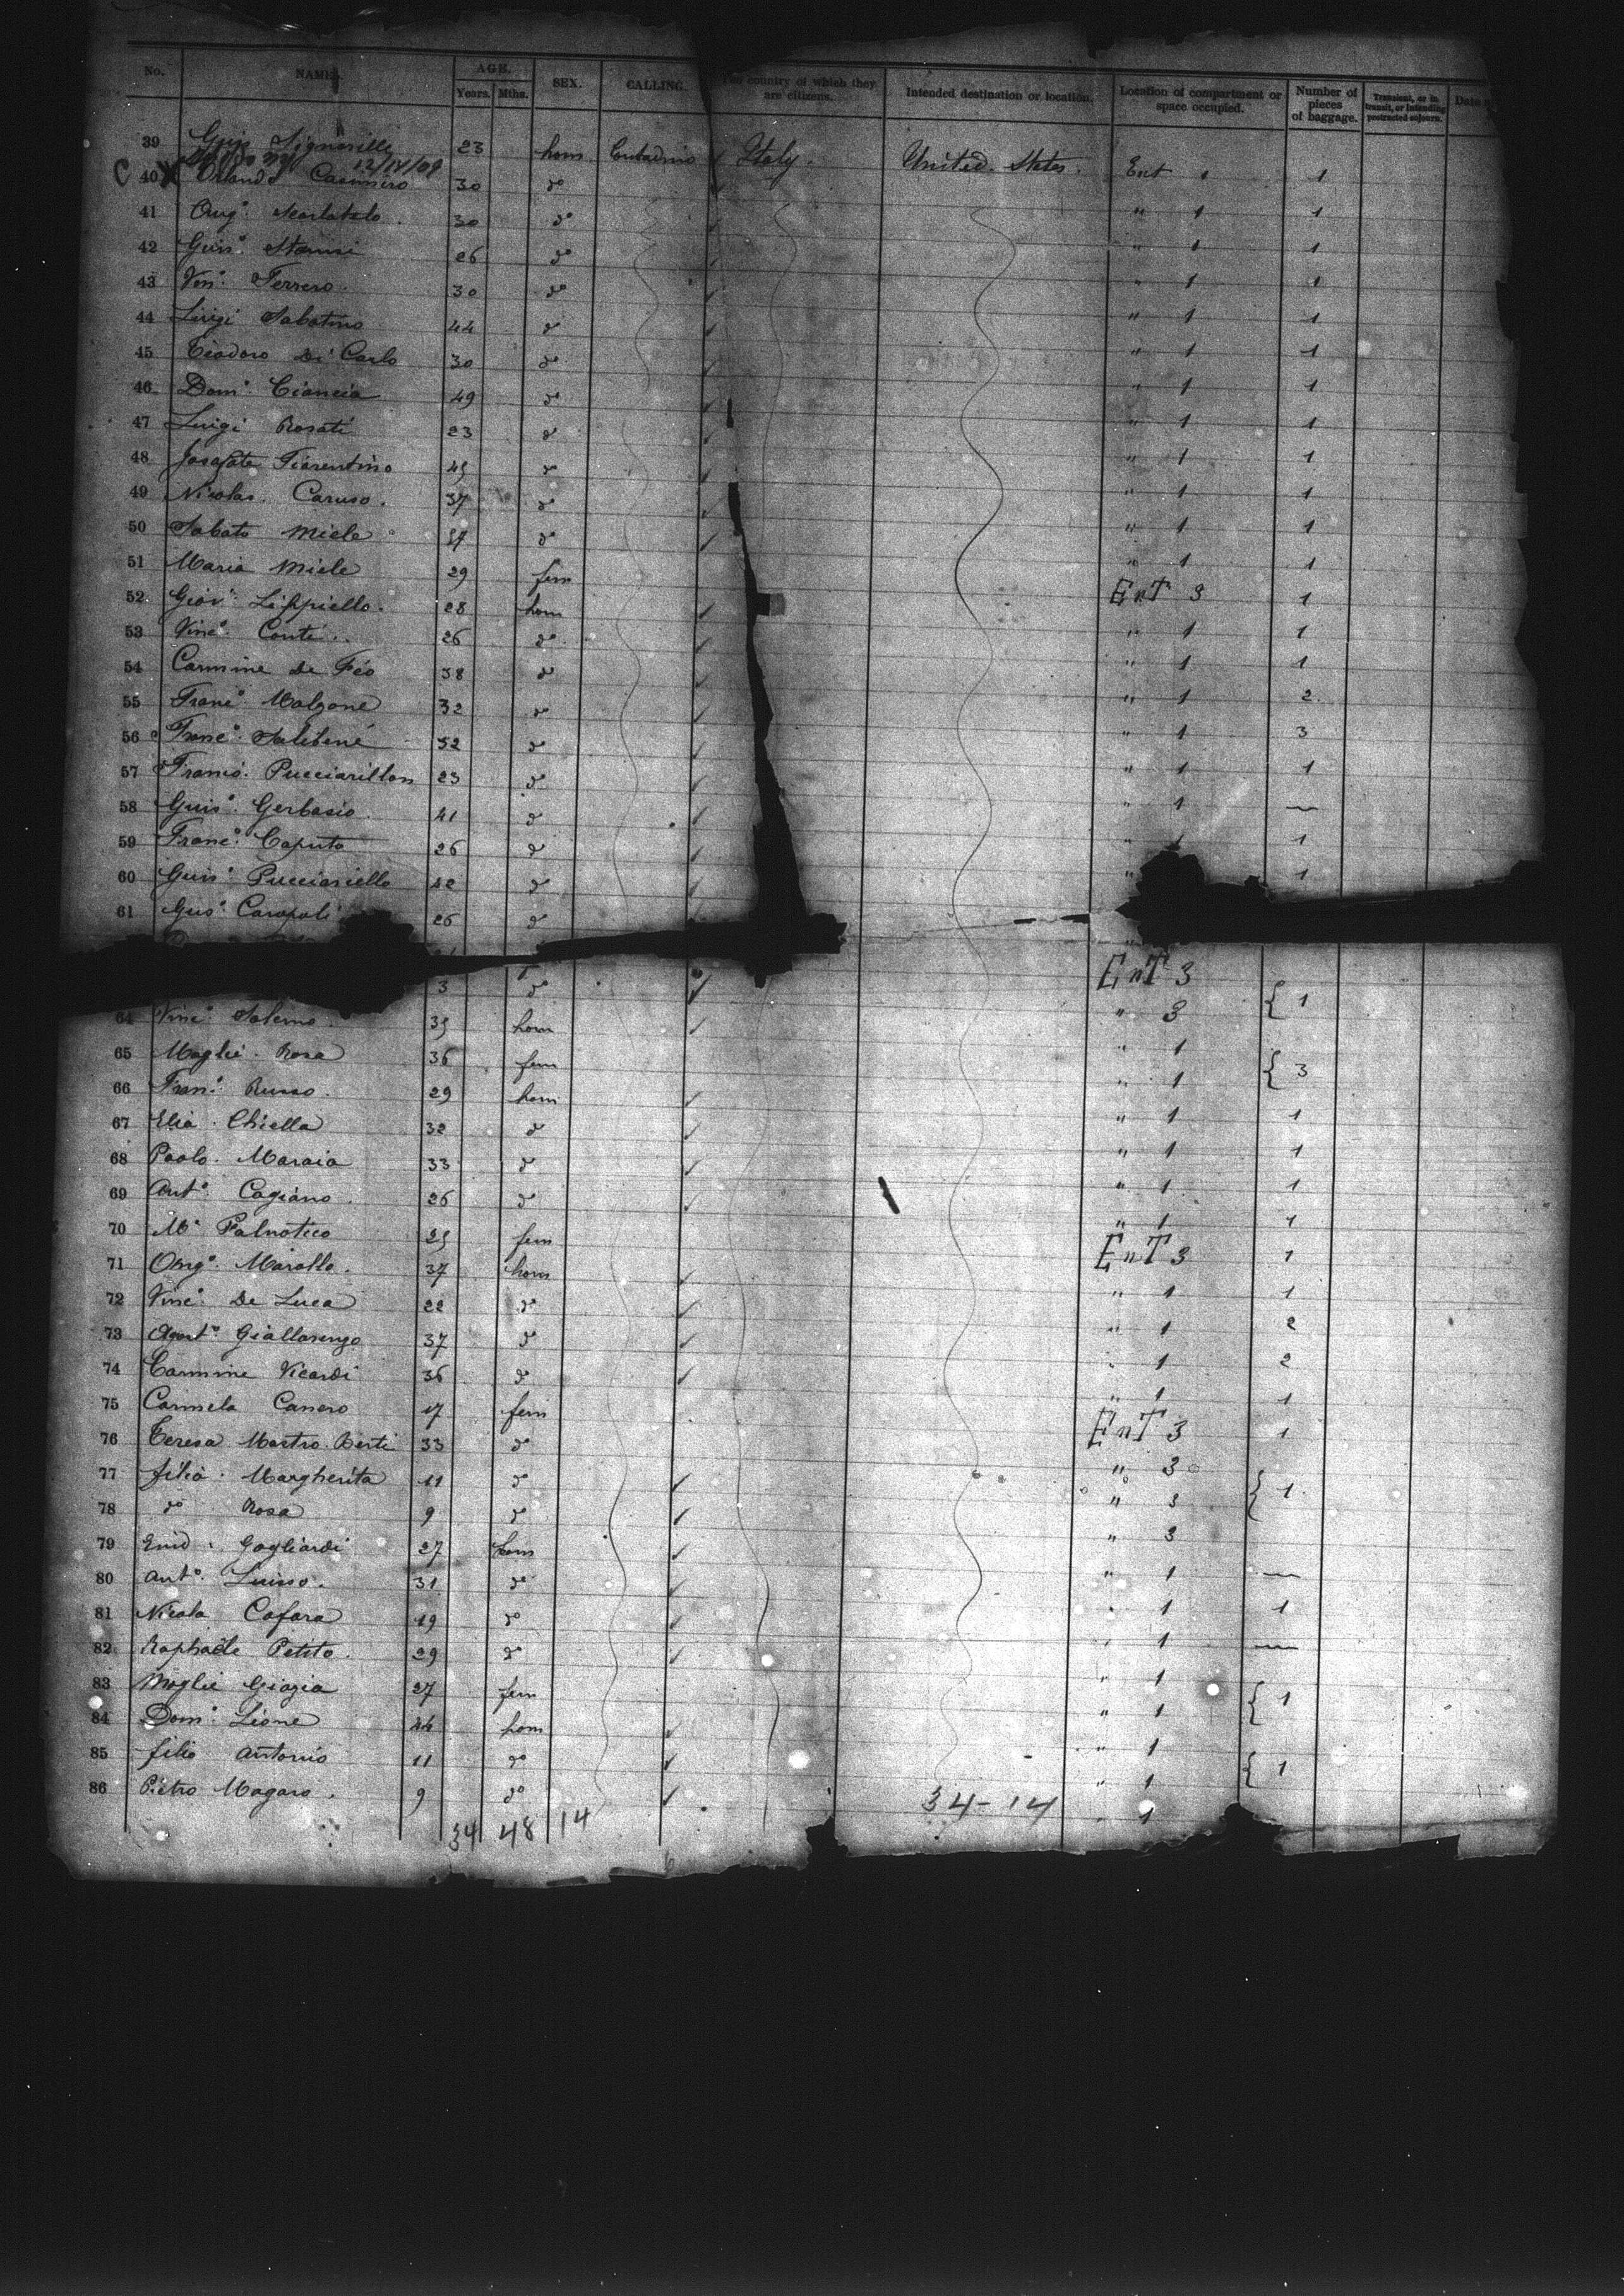 No. NAME. AGE. Years. Mths. SEX. CALLING. The country of which they are citizens. Intended destination or location. Location of compartment or space occupied. Number of pieces of baggage. Transient, or in transit, or intending protracted sojourn. Date
39 23 hom Contadino Italy. United States. Ent 1 1
12/14/09
C X 40 Orlando Casimiro 30 do " 1 1
41 Ang° 30 do " 1 1
42 Guis° 26 do " 1 1
43 Vin° Ferrero 30 do " 1 1
44 Luigi Sabatino 44 do " 1 1
45 Teodoro Di Carlo 30 do " 1 1
46 Dom° Ciancia 49 do " 1 1
47 Luigi Rosati 23 do " 1 1
48 Josafate Fiorentino do " 1 1
49 Nicolas. Caruso. 37 do " 1 1
50 Sabato Miele do " 1 1
51 Maria Miele 29 fem EnT 3 1
52 Giov° Lippiello. 28 hom " 1 1
53 Vinc° Conti.. 26 do " 1 1
54 Carmine De Feo 38 do " 1 2
55 Franc° Malzone 32 do " 1 3
56 Franc° 52 do " 1 1
57 Pucciarillon 23 do " 1 —
58 Guis° Gerbasio. 41 do 1 1
59 Franc° Caputo 26 do " 1
60 Guis° Pucciariello 42 do
61 Carapoli 26 do "
EnT 3
3 do " 3 { 1
64 Vinc° Salerno hom " 1
65 Moglie. Rosa 36 fem " 1 { 3
66 Fran° Russo. 29 hom " 1 1
67 Elia. Chiella 32 do " 1 1
68 Paolo. Maraia 33 do " 1 1
69 Ant° Cagiano. 26 do " 1 1
70 M° Palnotico fem EnT 3 1
71 Marallo. 37 hom " 1 1
72 Vinc° De Luca 22 do " 1 2
73 Giallorenzo 37 do " 1 2
74 Carmine Vicardi 36 do " 1 1
75 Carmela Canero 17 fem EnT 3 1
76 Teresa Mastro. Berti 33 do " 3
77 filia. Margherita 11 do " 3 { 1.
78 do Rosa 9 do " 3
79 Emid. Gagliardi 27 hom " 1 —
80 Ant° Luisso. 31 do " 1 1
81 Nicola Cafara 19 do " 1 —
82 Raphaële Petito. 29 do " 1
83 Moglie Giazia 27 fem " 1 { 1
84 Dom° Lione 44 hom " 1
85 filio Antonio 11 do " 1 { 1
86 Pietro Magaro. 9 do " 1
34 48 14 34-14